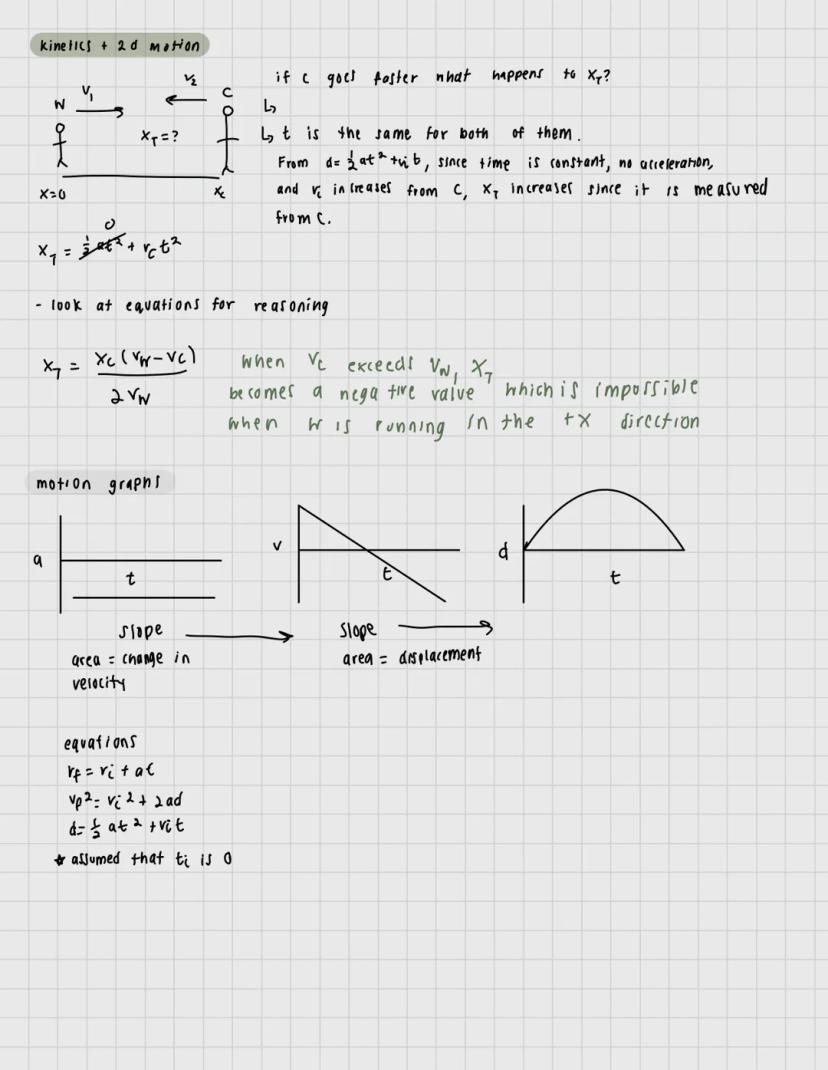 kinetics + 2d motion
if C goes faster what happens to x_T?
v_1
v_2
W
C
x_T = ?
x=0
x_c
↳
↳ t is the same for both of them.
From d= ½at² + v_i t, since time is constant, no acceleration,
and v_i increases from C, x_T increases since it is measured
from C.
0
x_T = ½at² + v_c t²
- look at equations for reasoning
x_T = x_c (v_w - v_c) / 2v_w
when v_c exceeds v_w, x_T
becomes a negative value which is impossible
when W is running in the +x direction
motion graphs
a
t
v
t
d
t
slope
area = change in
velocity
slope
area = displacement
equations
v_f = v_i + at
v_f² = v_i² + 2ad
d= ½ at² + v_i t
* assumed that t_i is 0